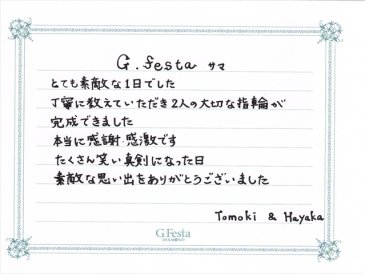 G.festa サマ
とても素敵な1日でした
丁寧に教えていただき2人の大切な指輪が
完成できました
本当に感謝・感激です
たくさん笑い真剣になった日
素敵な思い出をありがとうございました
Tomoki & Hayaka
G.Festa
DIAMOND